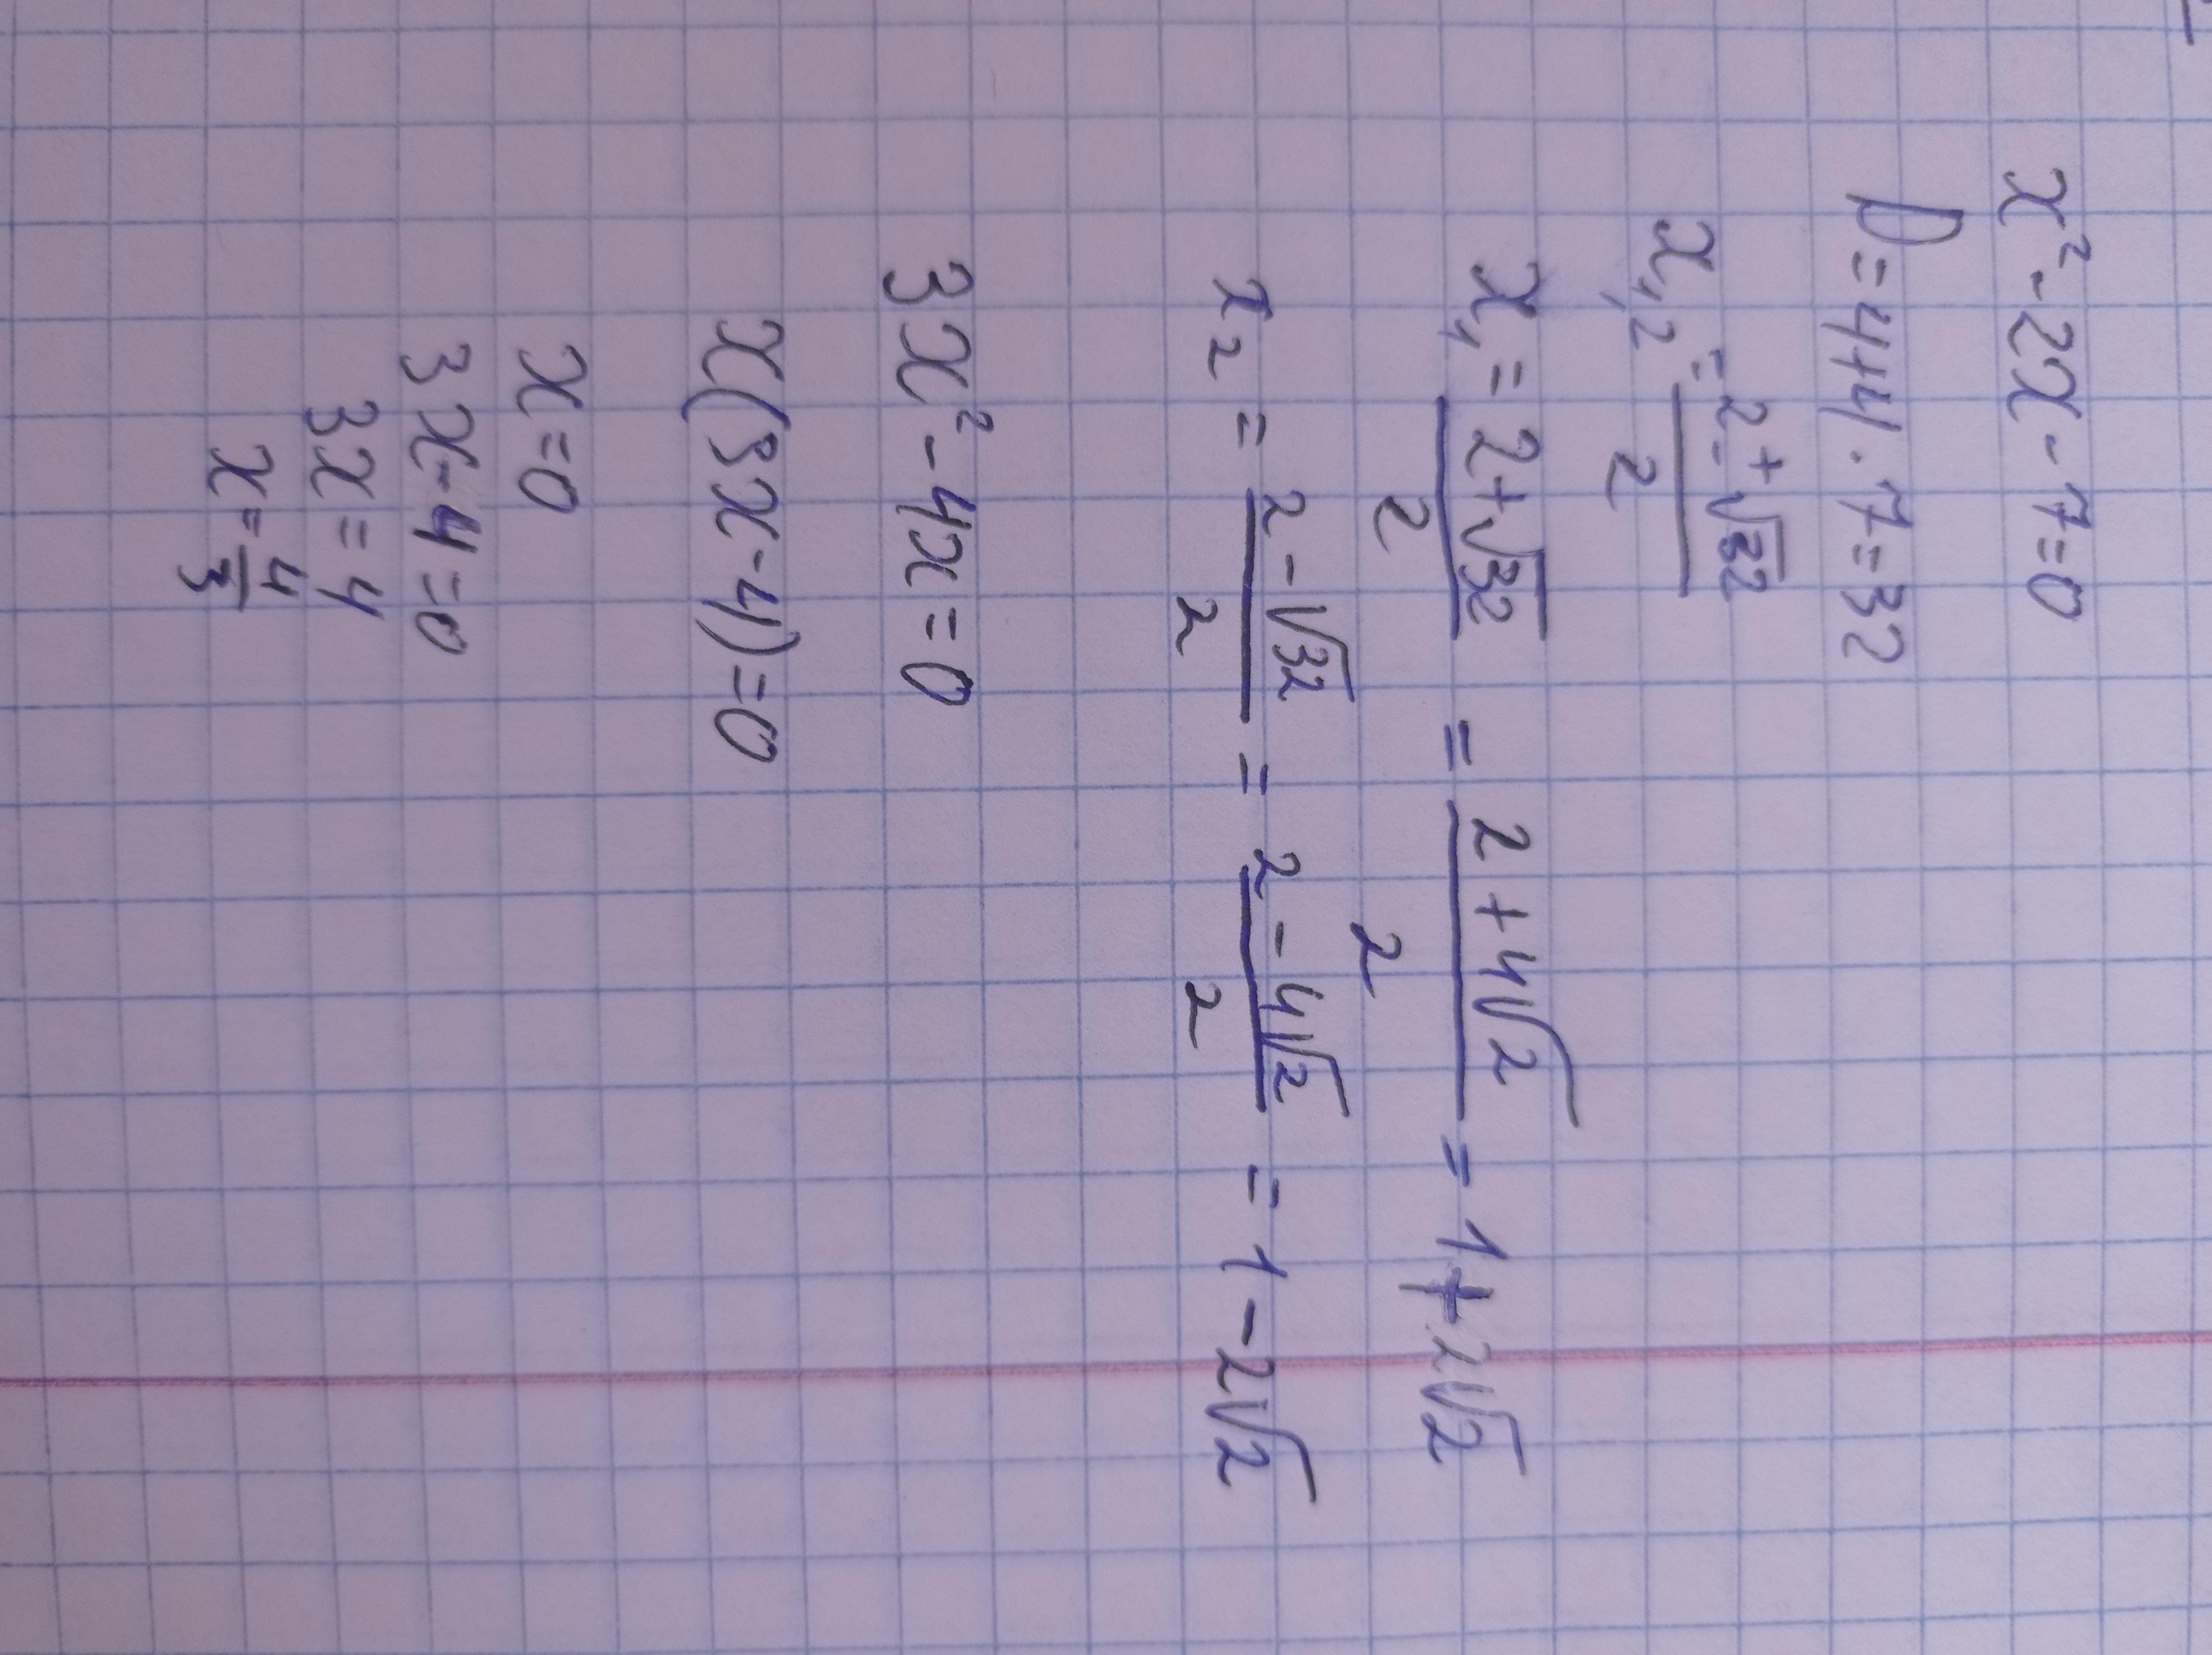 x² - 2x - 7 = 0
D = 4 + 4 · 7 = 32
x₁,₂ = (2 ± √32)/2
x₁ = (2 + √32)/2 = (2 + 4√2)/2 = 1 + 2√2
x₂ = (2 - √32)/2 = (2 - 4√2)/2 = 1 - 2√2
3x² - 4x = 0
x(3x - 4) = 0
x = 0
3x - 4 = 0
3x = 4
x = 4/3